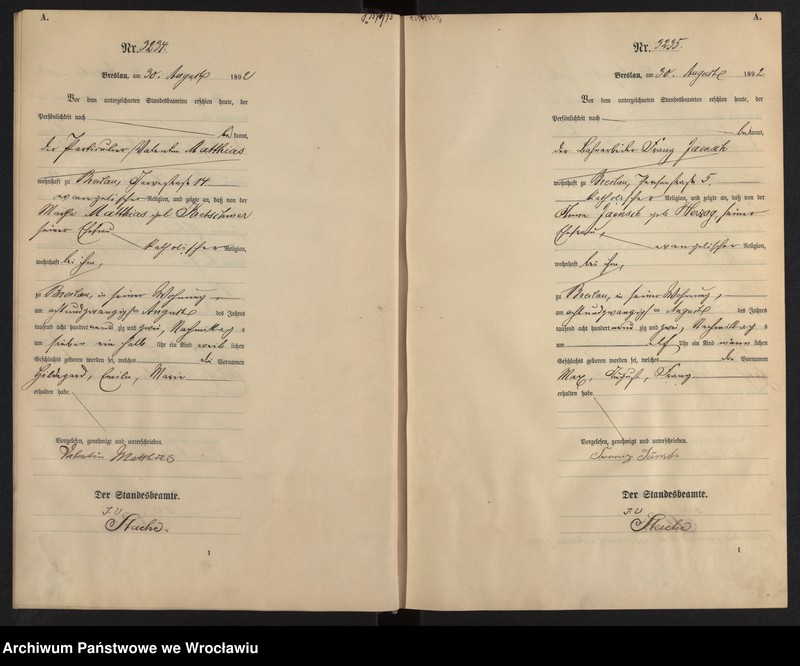 A.
Nr. 3234.
Breslau, am 30. August 1892
Vor dem unterzeichneten Standesbeamten erschien heute, der
Persönlichkeit nach
bekannt,
der Partikulier Valentin Matthias
wohnhaft zu Breslau, 14
evangelischer Religion, und zeigte an, daß von der
Matthias geb. Kretschmer
seiner Ehefrau
katholischer Religion,
wohnhaft bei ihm,
zu Breslau, in seiner Wohnung,
am achtundzwanzigsten August des Jahres
tausend acht hundert neunzig und zwei, Nachmittags
um sieben ein halb Uhr ein Kind weiblichen
Geschlechts geboren worden sei, welches die Vornamen
Hildegard, Emilie, Marie
erhalten habe.
Vorgelesen, genehmigt und unterschrieben.
Valentin Matthias
Der Standesbeamte.
J. V.
Stache.
1
A.
Nr. 3235.
Breslau, am 30. August 1892.
Vor dem unterzeichneten Standesbeamten erschien heute, der
Persönlichkeit nach
bekannt,
der Bahnarbeiter Franz Jaensch
wohnhaft zu Breslau, 5.
katholischer Religion, und zeigte an, daß von der
Anna Jaensch geb. Herzog, seiner
Ehefrau,
evangelischer Religion,
wohnhaft bei ihm,
zu Breslau, in seiner Wohnung,
am achtundzwanzigsten August des Jahres
tausend acht hundert neunzig und zwei, Nachmittags
um elf Uhr ein Kind männlichen
Geschlechts geboren worden sei, welches die Vornamen
Max, August, Franz
erhalten habe.
Vorgelesen, genehmigt und unterschrieben.
Franz
Der Standesbeamte.
J. V.
Stache
1
Archiwum Państwowe we Wrocławiu